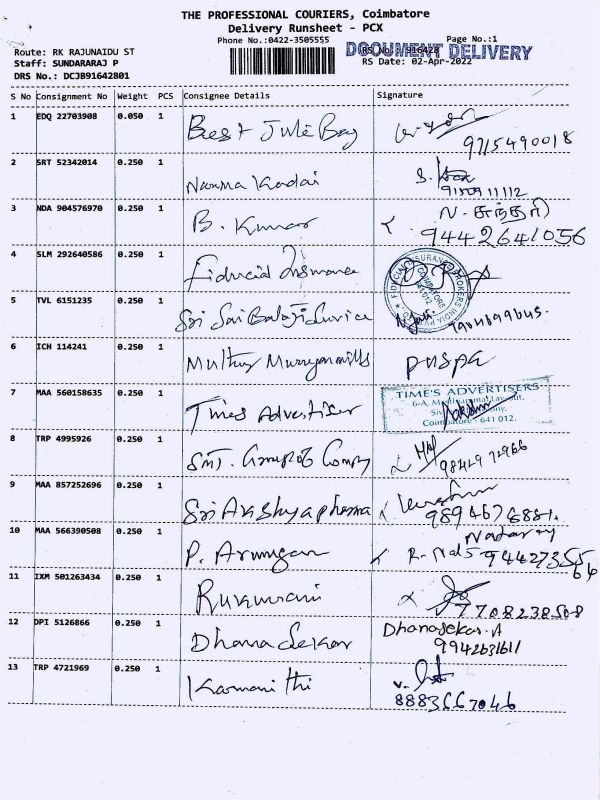 THE PROFESSIONAL COURIERS, Coimbatore
Delivery Runsheet - PCX
Phone No.:0422-3505555 Page No.:1
DOCUMENT DELIVERY
Route: RK RAJUNAIDU ST RS No.: 916428
Staff: SUNDARARAJ P RS Date: 02-Apr-2022
DRS No.: DCJB91642801
S No Consignment No Weight PCS Consignee Details Signature
1 EDQ 22703908 0.050 1 Best Jute Bag
9715490018
2 SRT 52342014 0.250 1 Namma Kadai S.
3 NDA 904576970 0.250 1 B. Kumar
9442641056
4 SLM 292640586 0.250 1 Fiducial Insurance
FIDUCIAL INSURANCE BROKERS INDIA
COIMBATORE
641 012
5 TVL 6151235 0.250 1 Sri Sai Balaji Service
6 ICH 114241 0.250 1 Muthu Murugan mills puspa
7 MAA 560158635 0.250 1 Times Advertiser TIME'S ADVERTISERS
Coimbatore - 641 012.
8 TRP 4995926 0.250 1 SMT. Group of Company
9 MAA 857252696 0.250 1 Sri Akshya pharma
9894676881.
10 MAA 566390508 0.250 1 P. Arumugam
Nataraj
11 IXM 501263434 0.250 1 Rukumani
7708238508
12 DPI 5126866 0.250 1 Dhana Sekar Dhanasekar.A
9942631611
13 TRP 4721969 0.250 1 Karmanithi
8883667046